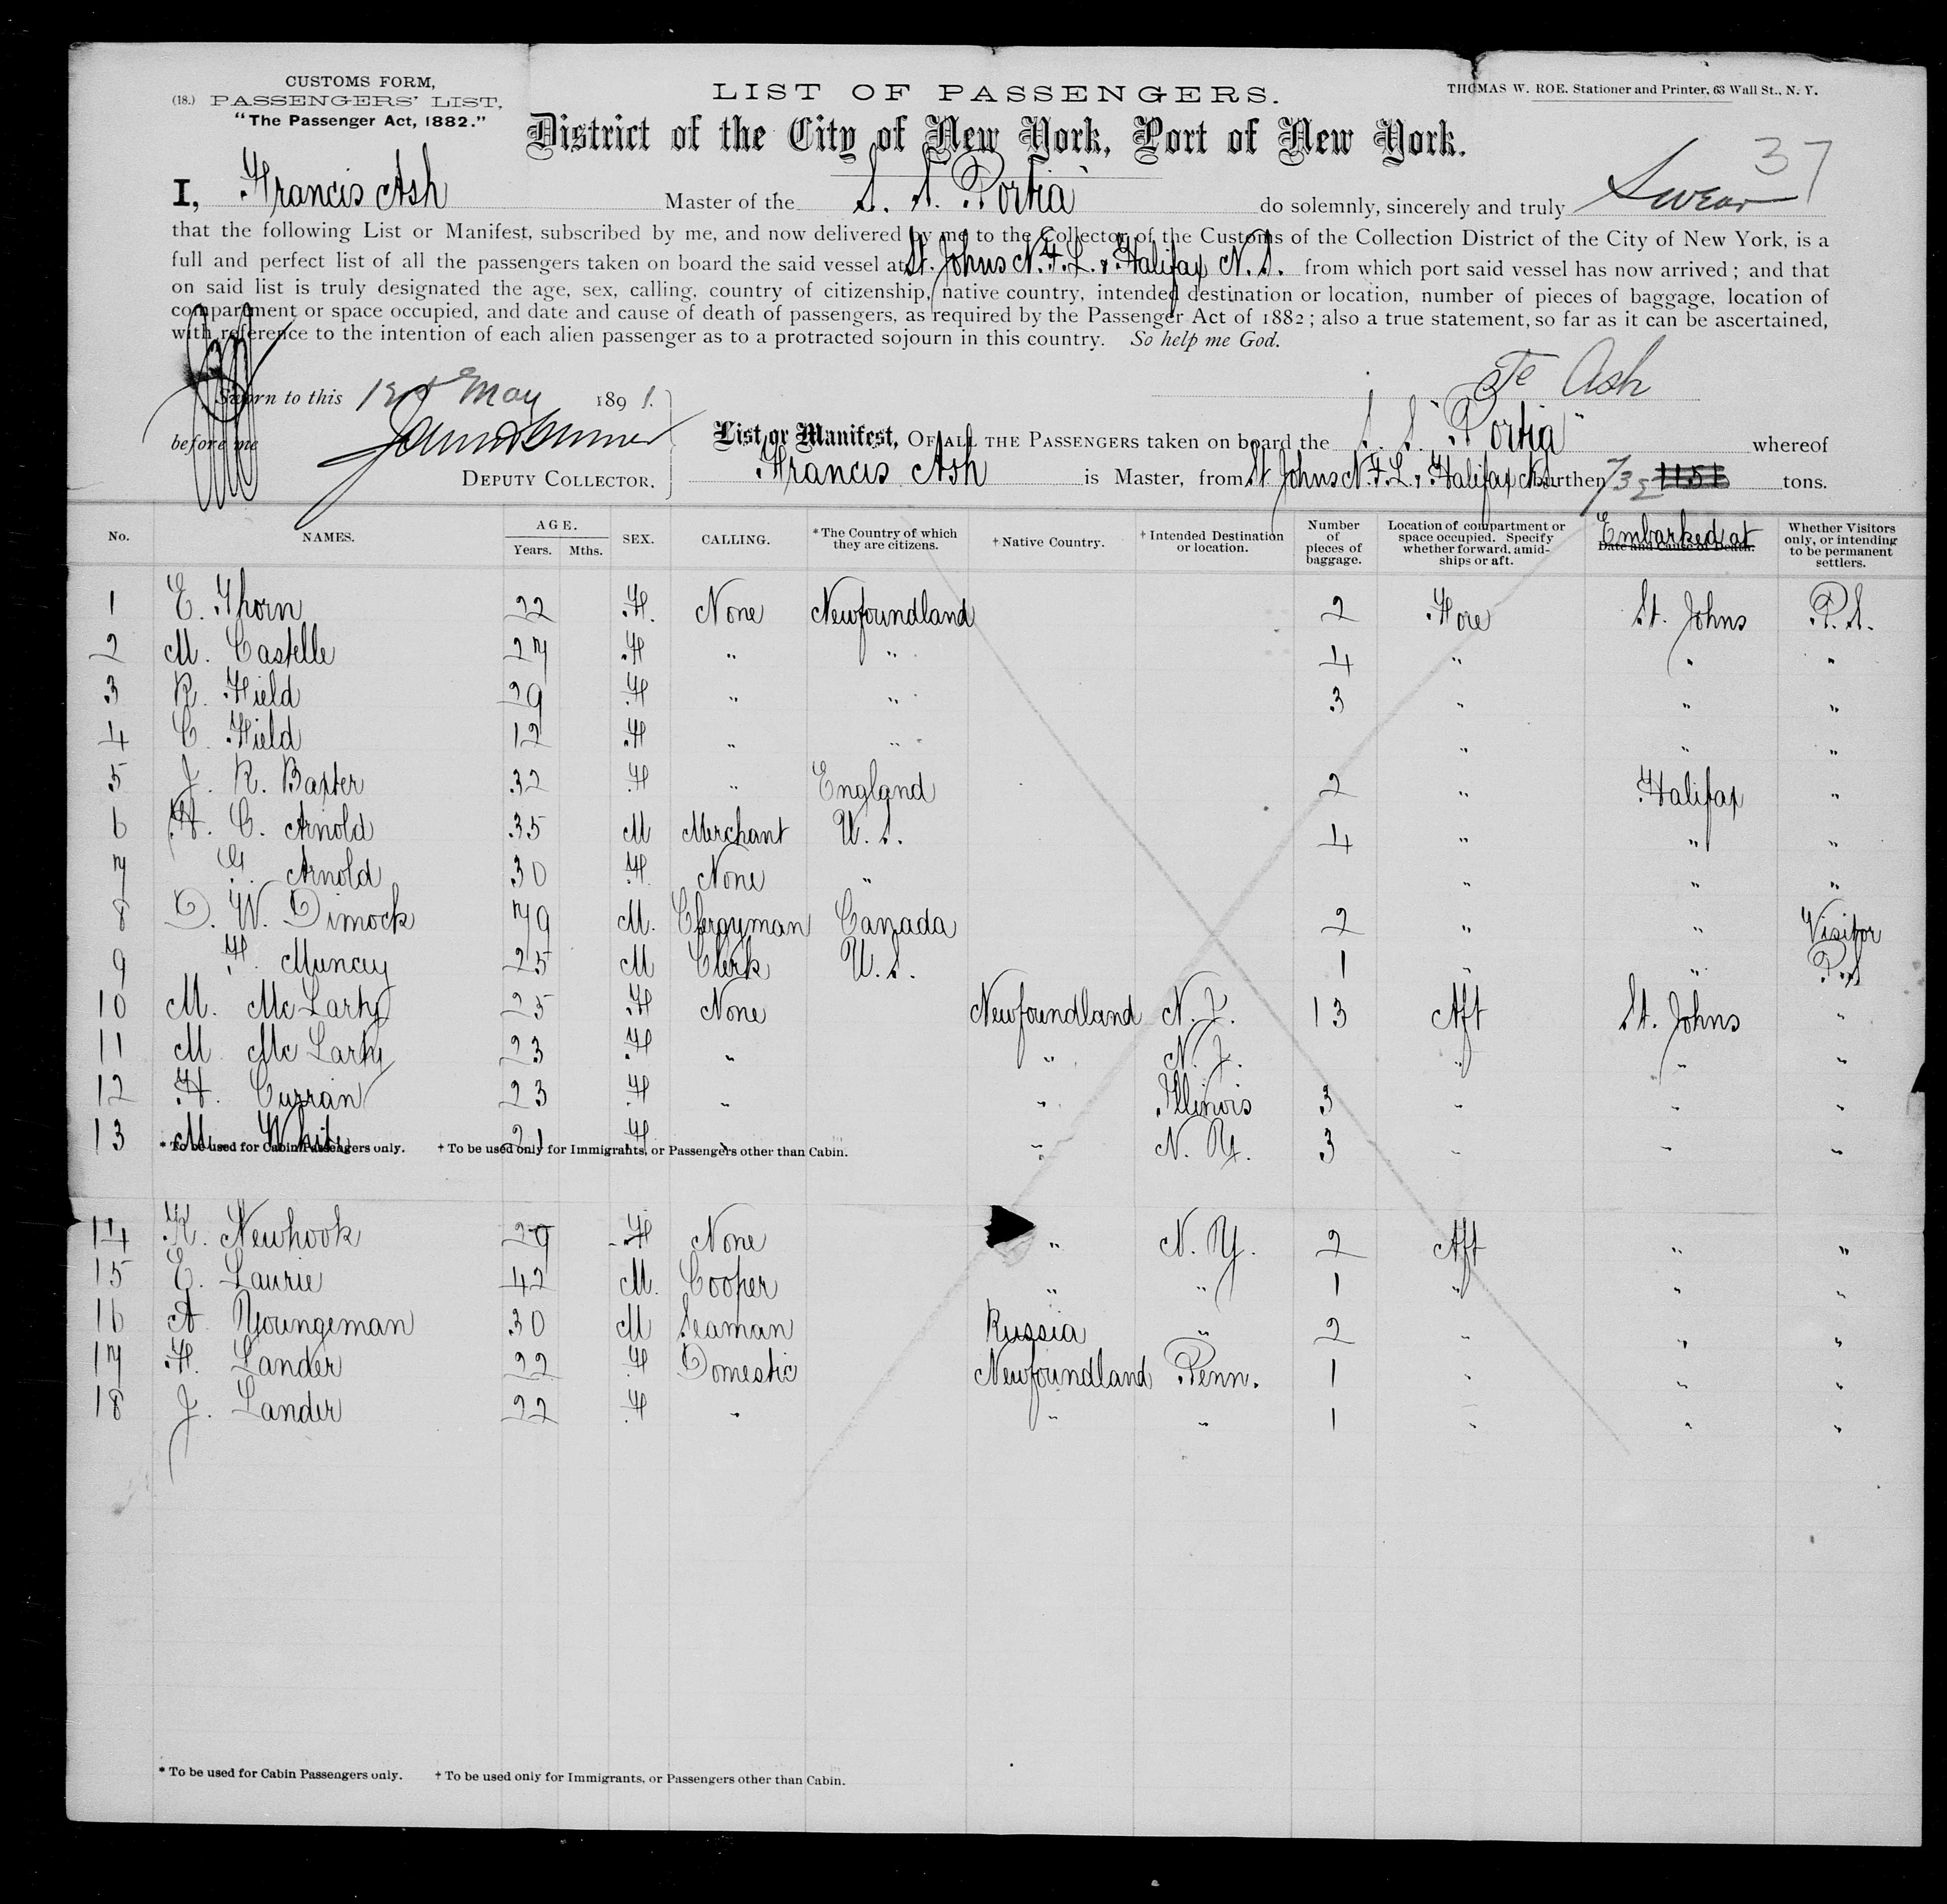 CUSTOMS FORM,
(18.) PASSENGERS' LIST,
"The Passenger Act, 1882."
LIST OF PASSENGERS.
THOMAS W. ROE. Stationer and Printer, 63 Wall St., N. Y.
District of the City of New York, Port of New York.
37
I, Francis Ash Master of the S. S. "Portia" do solemnly, sincerely and truly Swear
that the following List or Manifest, subscribed by me, and now delivered by me to the Collector of the Customs of the Collection District of the City of New York, is a
full and perfect list of all the passengers taken on board the said vessel at St. Johns N.F.L. & Halifax N.S. from which port said vessel has now arrived; and that
on said list is truly designated the age, sex, calling, country of citizenship, native country, intended destination or location, number of pieces of baggage, location of
compartment or space occupied, and date and cause of death of passengers, as required by the Passenger Act of 1882; also a true statement, so far as it can be ascertained,
with reference to the intention of each alien passenger as to a protracted sojourn in this country. So help me God.
Ash
Sworn to this May 1891.
before me
List or Manifest, OF ALL THE PASSENGERS taken on board the S. S. "Portia" whereof
DEPUTY COLLECTOR.
Francis Ash is Master, from St Johns N.F.L. & Halifax N.S. burthen tons.
No. NAMES. AGE. Years. Mths. SEX. CALLING. *The Country of which they are citizens. †Native Country. †Intended Destination or location. Number of pieces of baggage. Location of compartment or space occupied. Specify whether forward, amidships or aft. Embarked at Date and Cause of Death. Whether Visitors only, or intending to be permanent settlers.
1 E. Thorn 22 F. None Newfoundland 2 Fore St. Johns P.S.
2 M. Castelle 27 F " " 4 " " "
3 R. Field 29 F " " 3 " " "
4 C. Field 12 F " " " " "
5 J. R. Baxter 32 F " England 2 " Halifax "
6 H. C. Arnold 35 M Merchant U. S. 4 " " "
7 G. Arnold 30 F. None " " " "
8 D. W. Dimock 79 M. Clergyman Canada 2 " " Visitor
9 F. Muncey 25 M Clerk U. S. 1 " " P.S
10 M. McLarty 25 F None Newfoundland N. J. 13 Aft St. Johns "
11 M McLarty 23 F " " N. J. " " "
12 H. Curran 23 F " " Illinois 3 " " "
13 M. White 21 F " " N. Y. 3 " " "
* To be used for Cabin Passengers only. † To be used only for Immigrants, or Passengers other than Cabin.
14 K. Newhook 29 F None " N. Y. 2 Aft " "
15 E. Laurie 42 M. Cooper " " 1 " " "
16 A Youngeman 30 M Seaman Russia " 2 " " "
17 F. Lander 22 F Domestic Newfoundland Penn. 1 " " "
18 J. Lander 22 F " " " 1 " " "
* To be used for Cabin Passengers only. † To be used only for Immigrants, or Passengers other than Cabin.